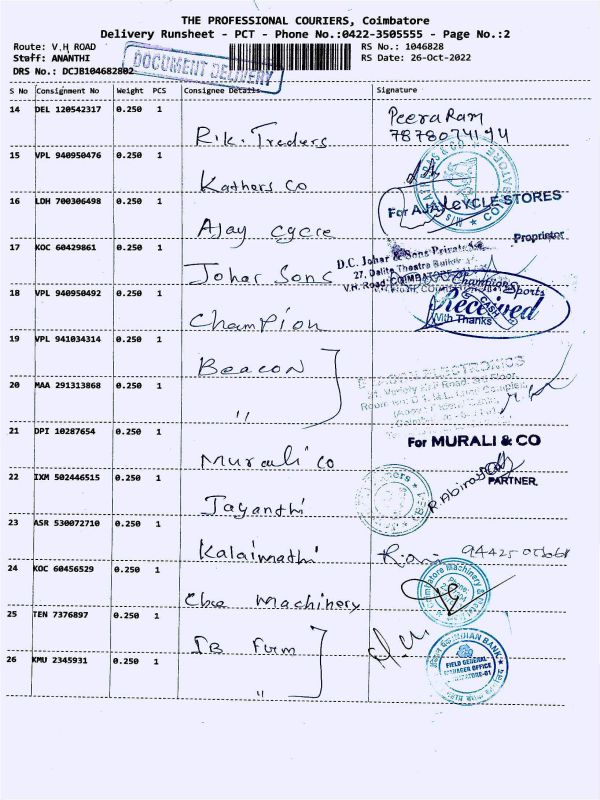 THE PROFESSIONAL COURIERS, Coimbatore
Delivery Runsheet - PCT - Phone No.:0422-3505555 - Page No.:2
Route: V.H ROAD
RS No.: 1046828
Staff: ANANTHI
RS Date: 26-Oct-2022
DRS No.: DCJB104682802
DOCUMENT DELIVERY
S No Consignment No Weight PCS Consignee Details Signature
14 DEL 120542317 0.250 1
R.K. Treders
PeeraRam
7878074194
15 VPL 940950476 0.250 1
Kathers Co
16 LDH 700306498 0.250 1
Ajay cycle
For AJAY CYCLE STORES
Proprietor
17 KOC 60429861 0.250 1
Johar Sons
D.C. Johar & Sons Private
27, Delite Theatre Building
V.H. Road, COIMBATORE
18 VPL 940950492 0.250 1
Champion
Champion Sports
Received
CASH
With Thanks
19 VPL 941034314 0.250 1
Beacon
ELECTRONICS
20 MAA 291313868 0.250 1
"
21 DPI 10287654 0.250 1
Murali co
For MURALI & CO
PARTNER
22 IXM 502446515 0.250 1
Jayanthi
23 ASR 530072710 0.250 1
Kalaimathi
24 KOC 60456529 0.250 1
Cbe Machinery
Coimbatore Machinery
25 TEN 7376897 0.250 1
IB Furm
INDIAN BANK
FIELD GENERAL
MANAGER OFFICE
COIMBATORE-01
26 KMU 2345931 0.250 1
"